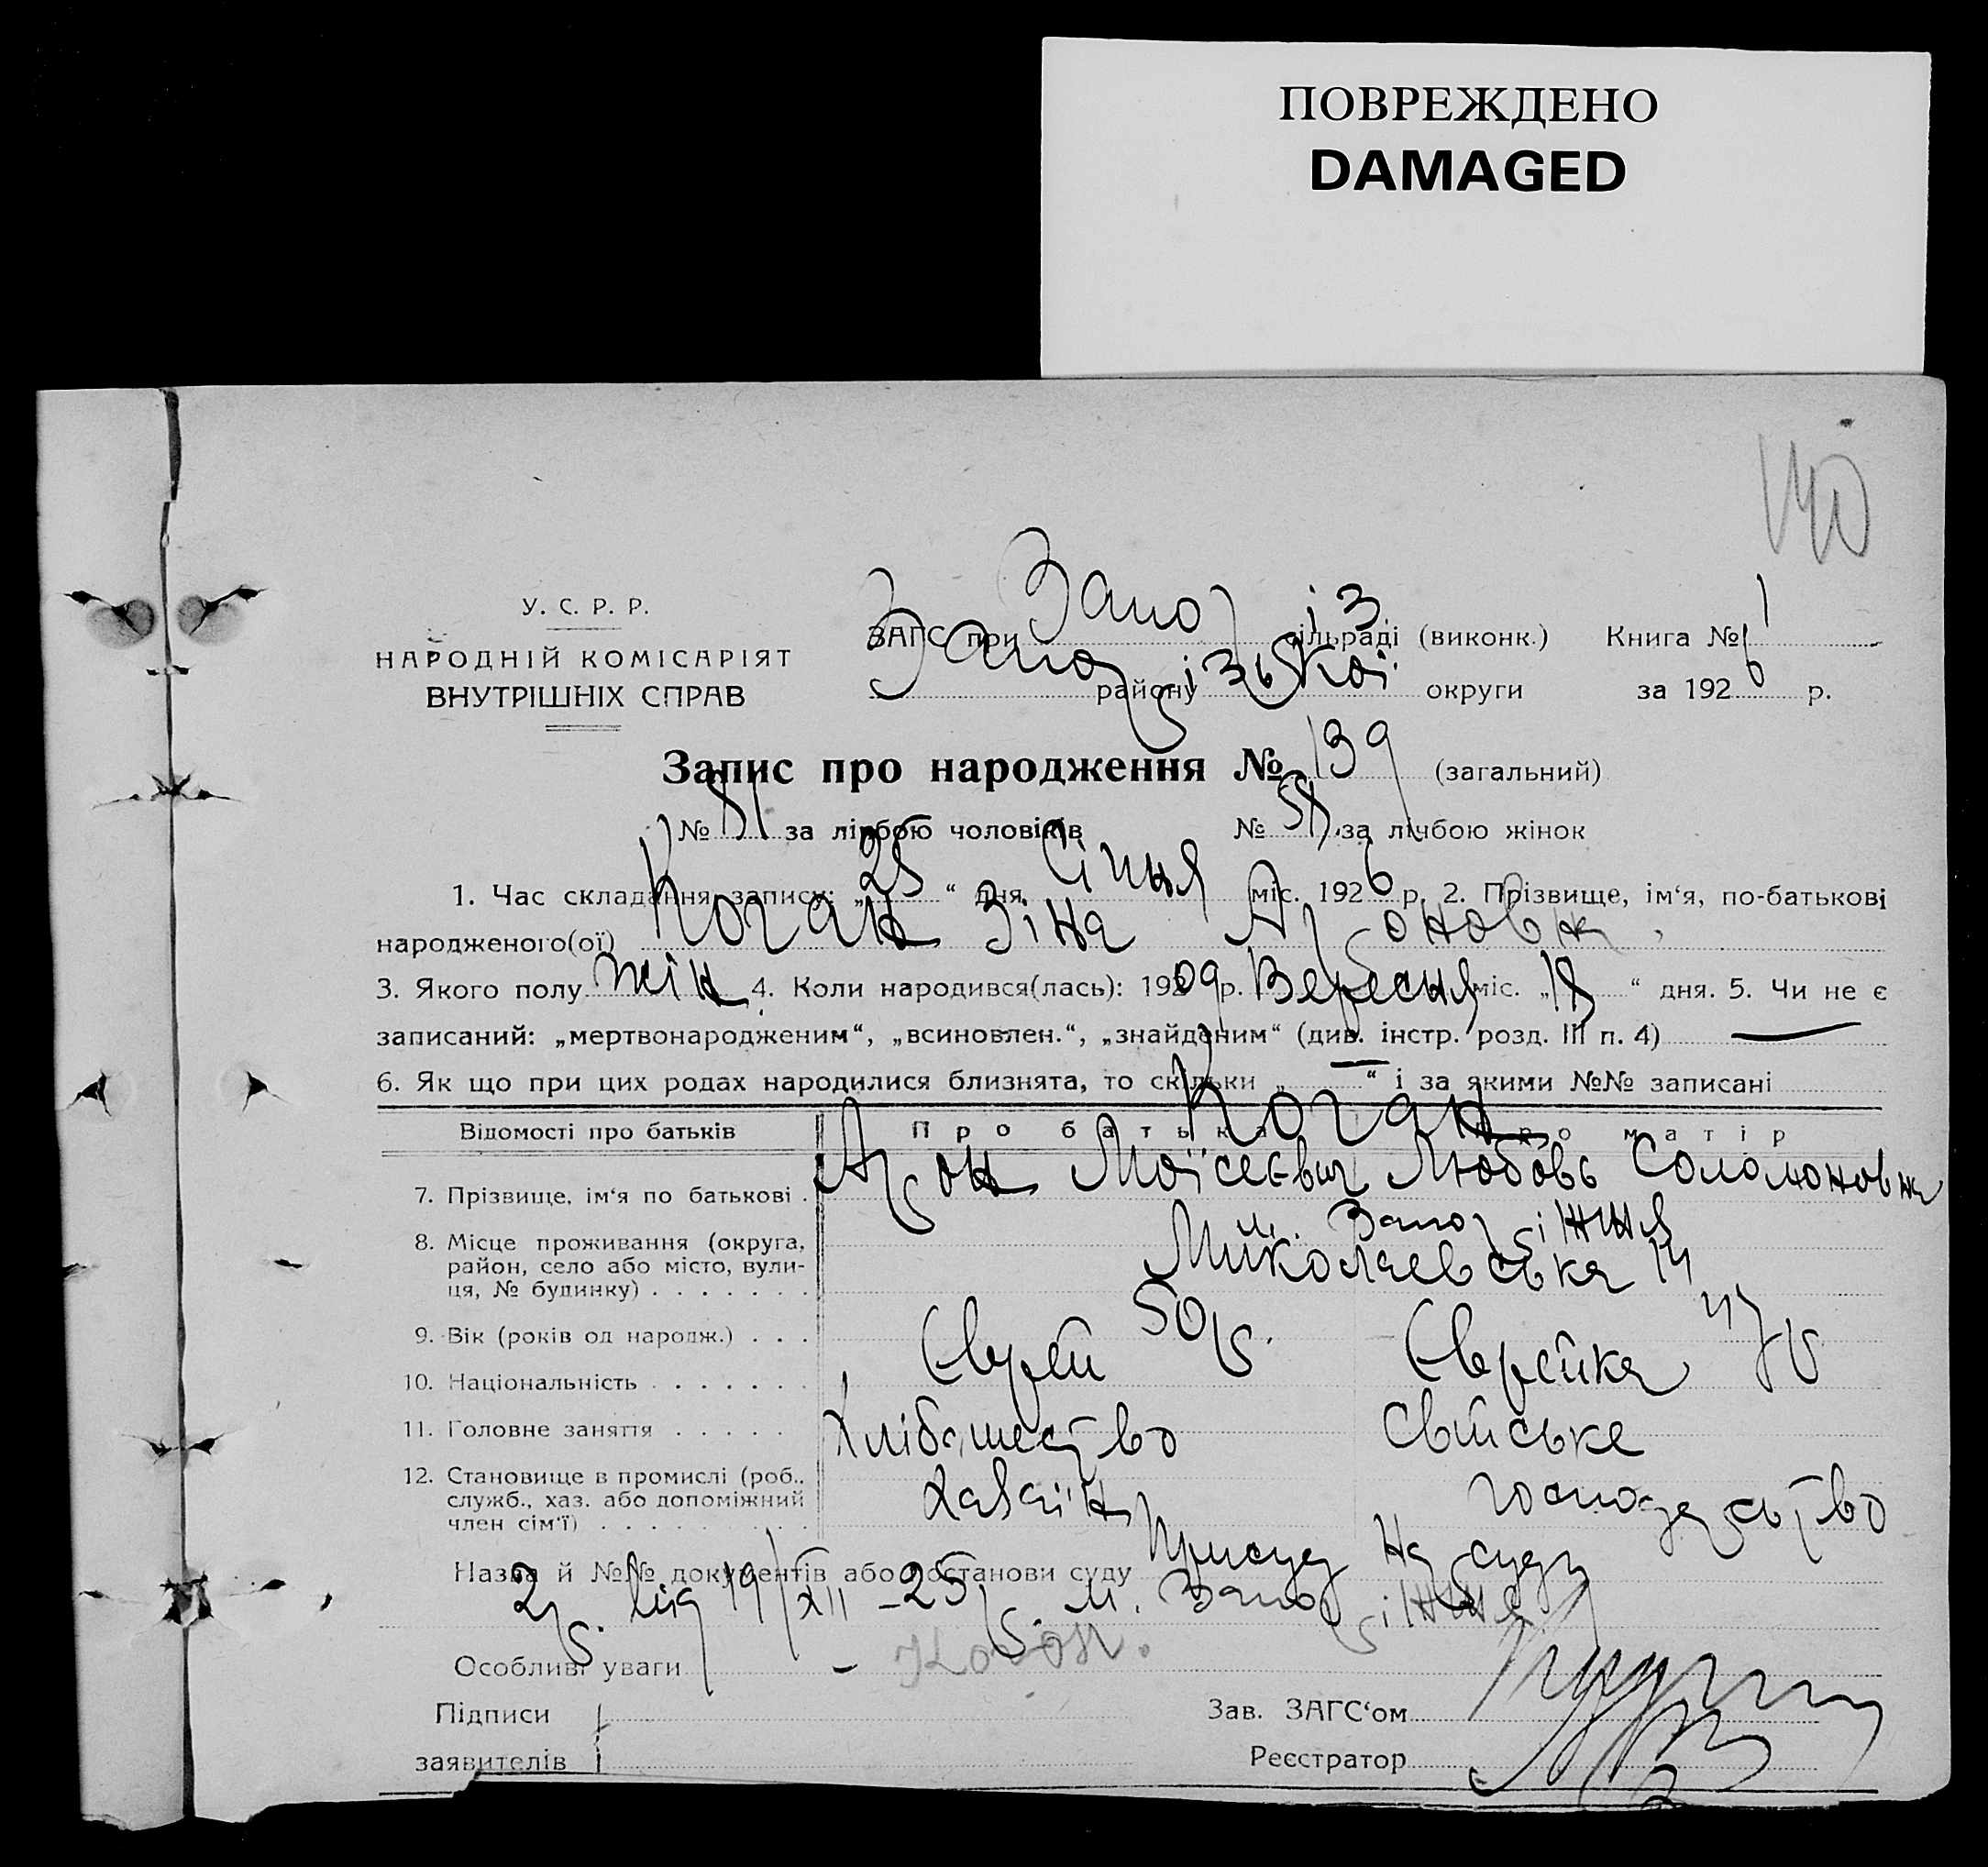 ПОВРЕЖДЕНО
DAMAGED
140
У. С. Р. Р.
НАРОДНІЙ КОМІСАРІЯТ
ВНУТРІШНІХ СПРАВ
ЗАГС при Запоріз сільраді (виконк.) Книга № 1
району Запорізької округи за 1926 р.
Запис про народження № 139 (загальний)
№ 81 за лічбою чоловіків № 58 за лічбою жінок
1. Час складання запису: „25“ дня Січня міс. 1926 р. 2. Прізвище, ім‘я, по-батькові
народженого(ої) Коган Зіна Ароновна
3. Якого полу жін 4. Коли народився(лась): 1909 р. Вересня міс. „18“ дня. 5. Чи не є
записаний: „мертвонародженим“, „всиновлен.“, „знайденим“ (див. інстр. розд. III п. 4) —
6. Як що при цих родах народилися близнята, то скільки „—“ і за якими №№ записані
Відомості про батьків Про батька Про матір
Коган
7. Прізвище, ім‘я по батькові . Арон Моїсеєвич Любовь Соломоновна
8. Місце проживання (округа, район, село або місто, вулиця, № будинку) . . . . . . . м. Запоріжжя
Миколаевська 14
9. Вік (років од народж.) . . . 50 р. 47 р
10. Національність . . . . . . . Єврей Єврейка
11. Головне заняття . . . . . Хлібо Свійське
12. Становище в промислі (роб., служб., хаз. або допоміжний член сім‘ї) . . . . . . . . . Хазаїн господарство
Назва й №№ документів або постанови суду Присуд Нарсуду
2 р. від 19/XII – 25 р. м. Запоріжжя
Особливі уваги –
Підписи Зав. ЗАГС‘ом
заявителів Реєстратор